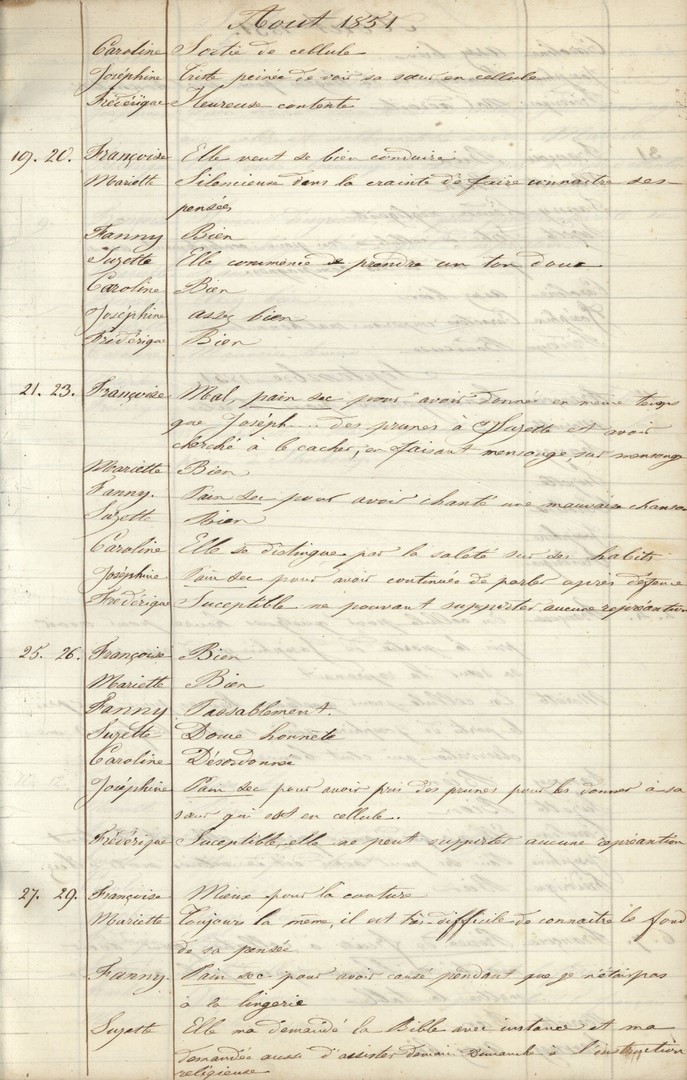 Aout 1851
Caroline Sortie de cellule
Joséphine Triste peinée de voir sa sœur en cellule
Frédérique Heureuse contente
19. 20. Françoise Elle veut se bien conduire
Mariette Silencieuse dans la crainte de faire connaitre ses
pensées
Fanny Bien
Suzette Elle commence à prendre un ton doux
Caroline Bien
Joséphine assez bien
Frédérique Bien
21. 23. Françoise Mal, pain sec pour avoir donner en même temps
que Joséph... des prunes à Suzette et avoir
cherché à le cacher, en faisant mensonge, sur mensonge
Mariette Bien
Fanny. Pain sec pour avoir chanté une mauvaise chanson
Suzette Bien
Caroline Elle se distingue par la saleté sur ses habits
Joséphine Pain sec pour avoir continuée de parler apres défence
Frédérique Suceptible ne pouvant supporter aucune repréantion
25. 26. Françoise Bien
Mariette Bien
Fanny Passablement.
Suzette Douce honnete
Caroline Désordonnée
Joséphine Pain sec pour avoir pris des prunes pour les donner à sa
sœur qui est en cellule.
Frédérique Suceptible, elle ne peut supporter aucune repréantion
27. 29. Françoise Mieux pour la couture
Mariette Toujours la même, il est très difficile de connaitre le fond
de sa pensée
Fanny Pain sec pour avoir causé pendant que je n'étais pas
à la lingerie
Suzette Elle ma demandé la Bible avec instance et ma
demandée aussi d'assister demain Dimanche à l'instruction
religieuse